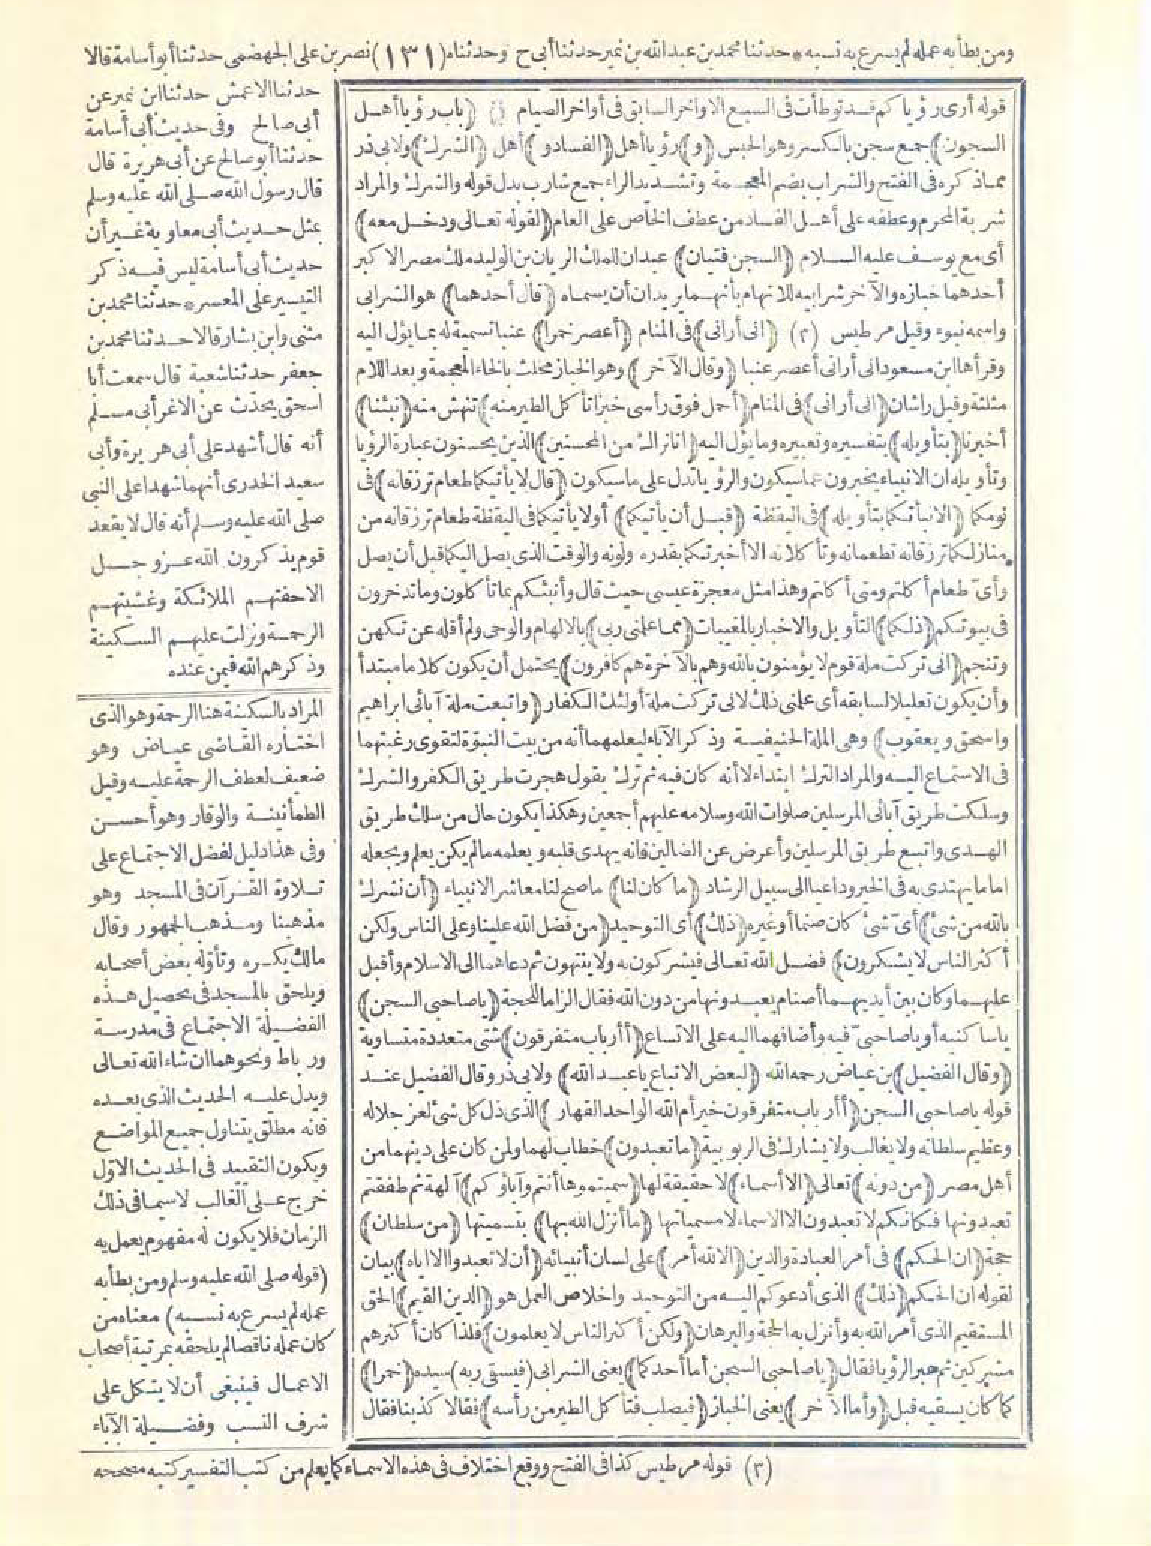 ومن بطأ به عمله لم يسرع به نسبه * حدثنا محمد بن عبد الله بن نمير حدثنا أبي ح وحدثناه (١٣١) نصر بن على الجهضمى حدثنا أبو أسامة قالا
قوله أرى رؤياكم قد توطأت فى السبع الاواخر السابق فى أواخر الصيام (باب رؤيا أهل
السجون) جمع سجن بالكسر وهو الحبس (و) رؤيا أهل (الفساد و) أهل (الشرك) ولابى ذر
مماذكره فى الفتح والشراب بضم المعجمة وتشديد الراء جمع شارب بدل قوله والشرك والمراد
شربة المحرم وعطفه على أهل الفساد من عطف الخاص على العام (لقوله تعالى ودخل معه)
أى مع يوسف عليه السلام (السجن فتيان) عبدان للملك الريان بن الوليد ملك مصر الاكبر
أحدهما خبازه والآخر شرابيه للاتهام بأنهما يريدان أن يسماه (قال أحدهما) هو الشرابى
واسمه نبوء وقيل مرطيس (٣) (انى أرانى) فى المنام (أعصر خمرا) عنبا تسمية له بما يؤل اليه
وقرأها ابن مسعود انى أرانى أعصر عنبا (وقال الآخر) وهو الخباز مخلث بالخاء المعجمة وبعد اللام
مثلثة وقيل راشان (انى أرانى) فى المنام (أحمل فوق رأسى خبزا تأكل الطير منه) تنهش منه (نبئنا)
أخبرنا (بتأويله) بتفسيره وتعبيره وما يؤل اليه (انا نراك من المحسنين) الذين يحسنون عبارة الرؤيا
وتأويله ان الانبياء يخبرون عماسيكون والرؤيا تدل على ماسيكون (قال لا يأتيكما طعام ترزقانه) فى
نومكما (الانبأتكما بتأويله) فى اليقظة (قبل أن يأتيكما) أولا يأتيكما فى اليقظة طعام ترزقانه من
منازلكما ترزقانه تطعمانه وتأكلانه الا أخبرتكما بقدره ولونه والوقت الذى يصل اليكما قبل أن يصل
وأى طعام أكلتم ومتى أكلتم وهذا مثل معجزة عيسى حيث قال وأنبئكم بما تأكلون وما تدخرون
فى بيوتكم (ذلكما) التأويل والاخبار بالمغيبات (مما علمنى ربى) بالالهام والوحى ولم أقله عن تكهن
وتنجم (انى تركت ملة قوم لا يؤمنون بالله وهم بالآخرة هم كافرون) يحتمل أن يكون كلاما مبتدأ
وأن يكون تعليلا لسابقه أى علمنى ذلك لانى تركت ملة أولئك الكفار (واتبعت ملة آبائى ابراهيم
واسحق ويعقوب) وهى الملة الحنيفية وذكر الآباء ليعلمهما أنه من بيت النبوة لتقوى رغبتهما
فى الاستماع اليه والمراد الترك ابتداء لا أنه كان فيه ثم ترك يقول هجرت طريق الكفر والشرك
وسلكت طريق آبائى المرسلين صلوات الله وسلامه عليهم أجمعين وهكذا يكون حال من سلك طريق
الهدى واتبع طريق المرسلين وأعرض عن الضالين فانه يهدى قلبه ويعلمه مالم يكن يعلم ويجعله
اماما يهتدى به فى الخير وداعيا الى سبيل الرشاد (ما كان لنا) ماصح لنا معاشر الانبياء (أن نشرك
بالله من شئ) أى شئ كان صنما أو غيره (ذلك) أى التوحيد (من فضل الله علينا وعلى الناس ولكن
أكثر الناس لا يشكرون) فضل الله تعالى فيشركون به ولا ينتهون ثم دعاهما الى الاسلام وأقبل
عليهما وكان بين أيديهما أصنام يعبدونها من دون الله فقال الزاما للحجة (ياصاحبى السجن)
ياساكنيه أو ياصاحبى فيه وأضافهما اليه على الاتساع (أأرباب متفرقون) شتى متعددة متساوية
(وقال الفضيل) بن عياض رحمه الله (لبعض الاتباع ياعبد الله) ولابى ذر وقال الفضيل عند
قوله ياصاحبى السجن (أأرباب متفرقون خير أم الله الواحد القهار) الذى ذل كل شئ لعز جلاله
وعظيم سلطانه ولا يغالب ولا يشارك فى الربوبية (ما تعبدون) خطاب لهما ولمن كان على دينهما من
أهل مصر (من دونه) تعالى (الا أسماء) لا حقيقة لها (سميتموها أنتم وآباؤكم) آلهة ثم طفقتم
تعبدونها فكأنكم لا تعبدون الا الاسماء لا مسمياتها (ما أنزل الله بها) بتسميتها (من سلطان)
حجة (ان الحكم) فى أمر العبادة والدين (الا لله أمر) على لسان أنبيائه (أن لا تعبدوا الا اياه) بيان
لقوله ان الحكم (ذلك) الذى أدعوكم اليه من التوحيد واخلاص العمل هو (الدين القيم) الحق
المستقيم الذى أمر الله به وأنزل به الحجة والبرهان (ولكن أكثر الناس لا يعلمون) فلذا كان أكثرهم
مشركين ثم عبر الرؤيا فقال (ياصاحبى السجن أما أحدكما) يعنى الشرابى (فيسقى ربه) سيده (خمرا)
كما كان يسقيه قبل (وأما الآخر) يعنى الخباز (فيصلب فتأكل الطير من رأسه) فقالا كذبنا فقال
حدثنا الاعمش حدثنا ابن نمير عن
أبى صالح وفى حديث أبى أسامة
حدثنا أبو صالح عن أبى هريرة قال
قال رسول الله صلى الله عليه وسلم
بمثل حديث أبى معاوية غير أن
حديث أبى أسامة ليس فيه ذكر
التيسير على المعسر * حدثنا محمد بن
مثنى وابن بشار قالا حدثنا محمد بن
جعفر حدثنا شعبة قال سمعت أبا
اسحق يحدث عن الاغر أبى مسلم
أنه قال أشهد على أبى هريرة وأبى
سعيد الخدرى أنهما شهدا على النبى
صلى الله عليه وسلم أنه قال لا يقعد
قوم يذكرون الله عز وجل
الا حفتهم الملائكة وغشيتهم
الرحمة ونزلت عليهم السكينة
وذكرهم الله فيمن عنده
المراد بالسكينة هنا الرحمة وهو الذى
اختاره القاضى عياض وهو
ضعيف لعطف الرحمة عليه وقيل
الطمأنينة والوقار وهو أحسن
وفى هذا دليل لفضل الاجتماع على
تلاوة القرآن فى المسجد وهو
مذهبنا ومذهب الجمهور وقال
مالك يكره وتأوله بعض أصحابه
ويلحق بالمسجد فى تحصيل هذه
الفضيلة الاجتماع فى مدرسة
ورباط ونحوهما ان شاء الله تعالى
ويدل عليه الحديث الذى بعده
فانه مطلق يتناول جميع المواضع
ويكون التقييد فى الحديث الاول
خرج على الغالب لاسيما فى ذلك
الزمان فلا يكون له مفهوم يعمل به
(قوله صلى الله عليه وسلم ومن بطأ به
عمله لم يسرع به نسبه) معناه من
كان عمله ناقصا لم يلحقه بمرتبة أصحاب
الاعمال فينبغى أن لا يتكل على
شرف النسب وفضيلة الآباء
(٣) قوله مرطيس كذا فى الفتح ووقع اختلاف فى هذه الاسماء كما يعلم من كتب التفسير كتبه مصححه